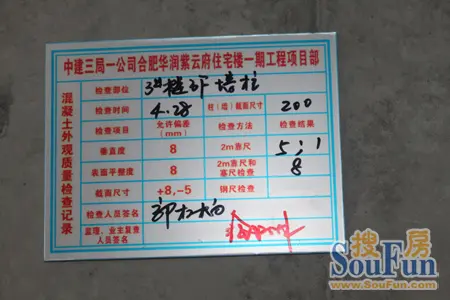 中建三局一公司合肥华润紫云府住宅楼一期工程项目部
混凝土外观质量检查记录
检查部位 3#楼 墙柱
检查时间 4.28 柱(墙)截面尺寸 200
检查项目 允许偏差(mm) 检查方法 检查结果
垂直度 8 2m靠尺 5;1
表面平整度 8 2m靠尺和塞尺检查 8
截面尺寸 +8,-5 钢尺检查
检查人员签名
监理、业主复查人员签名
搜房
SouFun
www.SouFun.com